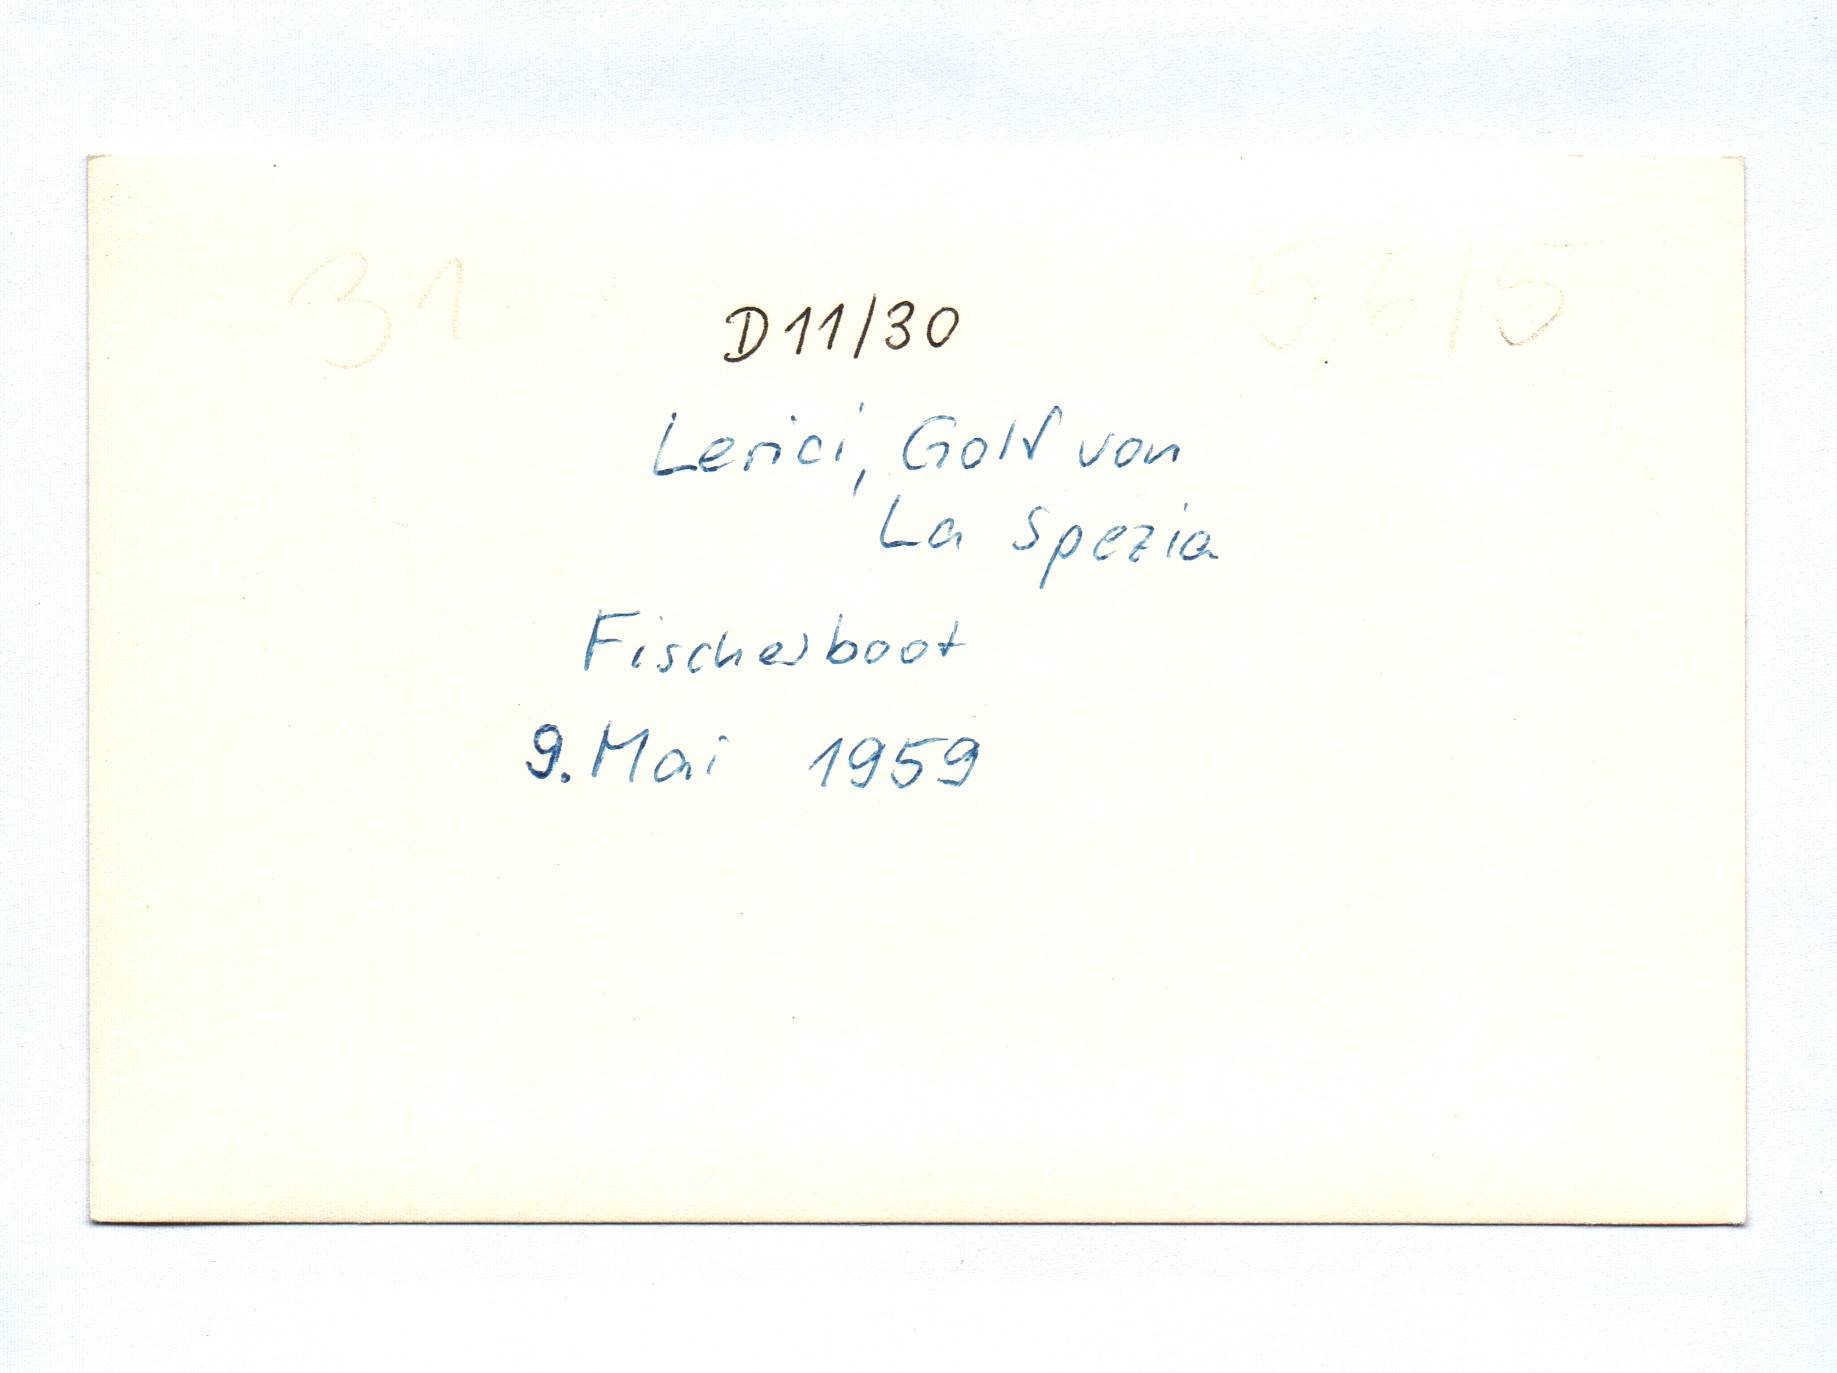 31
D11/30
Lerici, Golf von
La Spezia
Fischerboot
9. Mai 1959